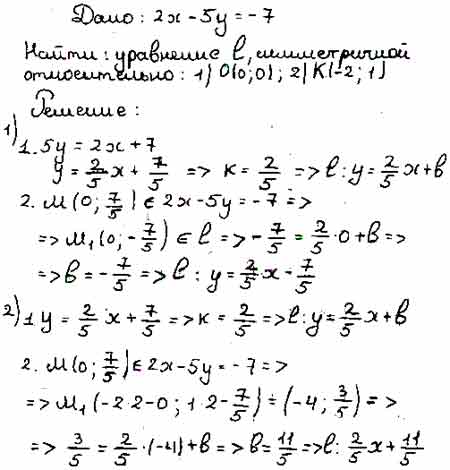 Дано: 2x - 5y = -7
Найти: уравнение l, симметричной
относительно: 1) O(0;0); 2) K(-2; 1)
Решение:
1) 1. 5y = 2x + 7
y = 2/5 x + 7/5 => k = 2/5 => l: y = 2/5 x + b
2. M(0; 7/5) ∈ 2x - 5y = -7 =>
=> M₁(0; -7/5) ∈ l => -7/5 = 2/5 · 0 + b =>
=> b = -7/5 => l: y = 2/5 · x - 7/5
2) 1 y = 2/5 x + 7/5 => k = 2/5 => l: y = 2/5 x + b
2. M(0; 7/5) ∈ 2x - 5y = -7 =>
=> M₁(-2·2-0; 1·2-7/5) = (-4; 3/5) =>
=> 3/5 = 2/5 · (-4) + b => b = 11/5 => l: 2/5 x + 11/5